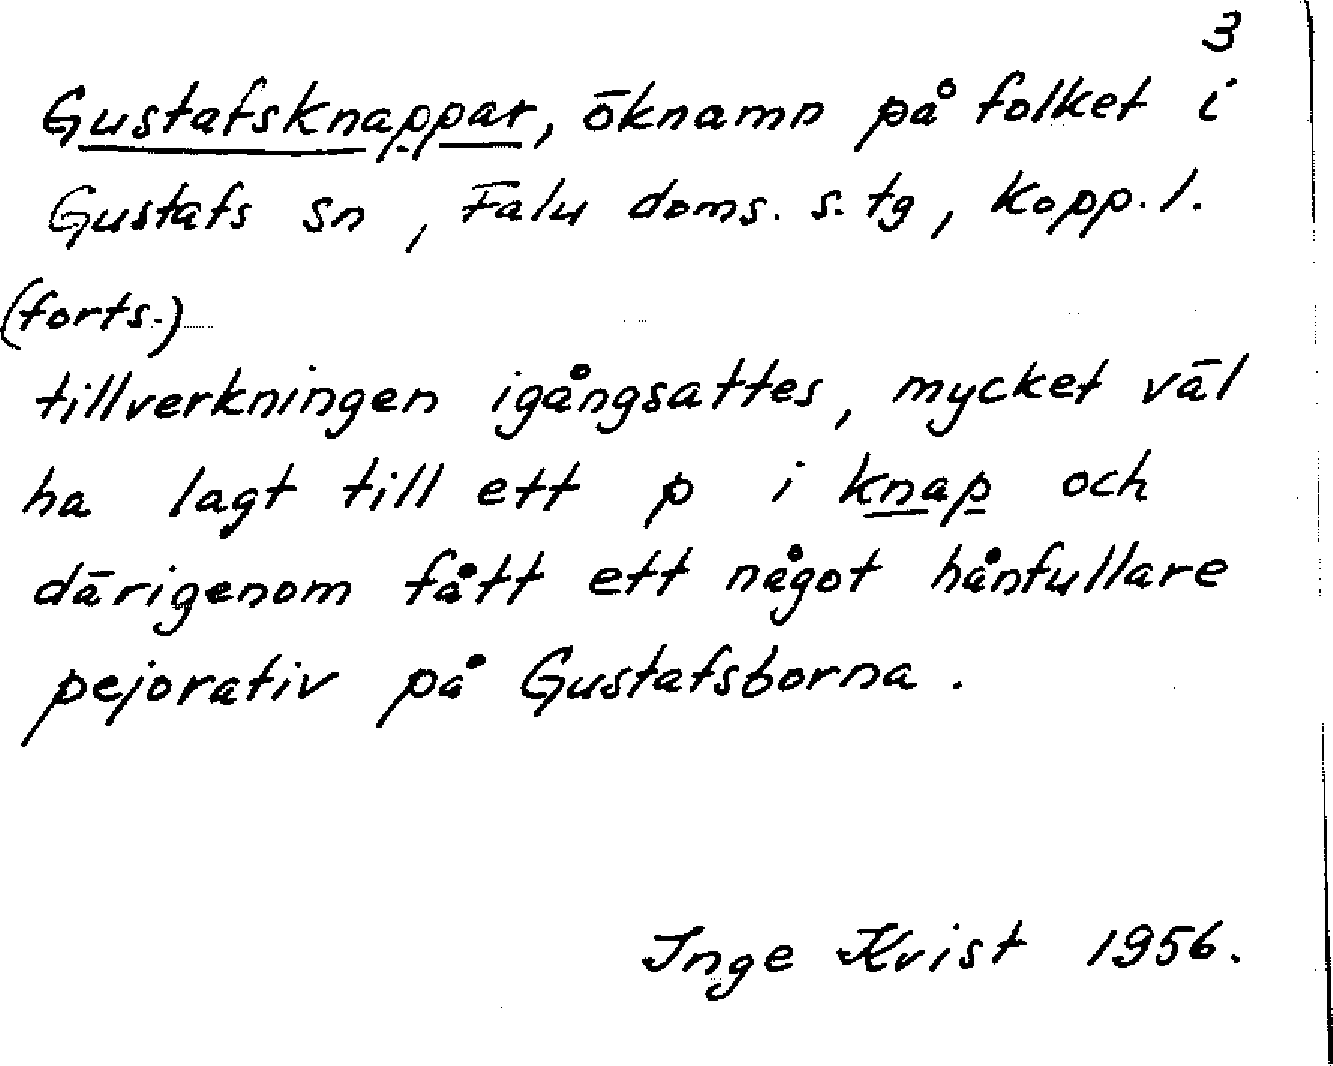 3
Gustafsknappar, öknamn på folket i
Gustafs sn, Falu doms. s. tg, Kopp. l.
(forts.)
tillverkningen igångsattes, mycket väl
ha lagt till ett p i knap och
därigenom fått ett något hånfullare
pejorativ på Gustafsborna.
Inge Kvist 1956.